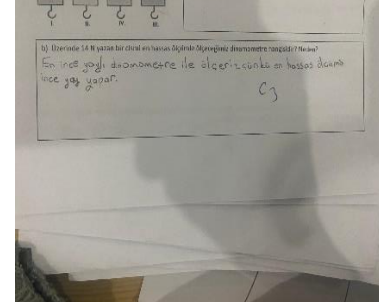 I. II. IV. III.
b) Üzerinde 14 N yazan bir cismi en hassas ölçümle ölçeceğiniz dinamometre hangisidir? Neden?
En ince yaylı dinamometre ile ölçeriz çünkü en hassas
ince yay yapar.